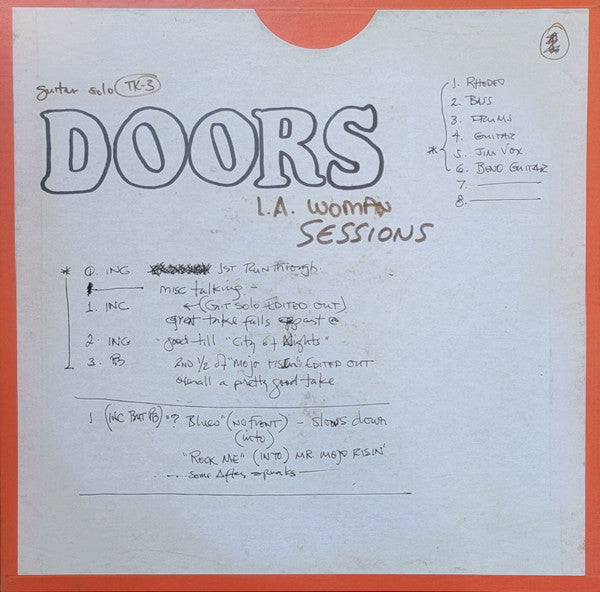 guitar solo TK-3
DOORS
L.A. WOMAN
SESSIONS
1. RHODES
2. BASS
3. DRUMS
4. GUITAR
* 5. JIM VOX
6. BEND GUITAR
7.
8.
* 0. ING 1ST RUNTHROUGH.
misc talking -
1. INC ←(GIT SOLO EDITED OUT)
great take falls apart @
2. ING good till "City of Nights"
3. PB 2ND 1/2 of "MOJO RISIN" EDITED OUT
overall a pretty good take
1 (INC BUT PB) "? Blues" (NO FRONT) - SLOWS DOWN
(INTO)
"ROCK ME" (INTO) MR MOJO RISIN'
- Some After